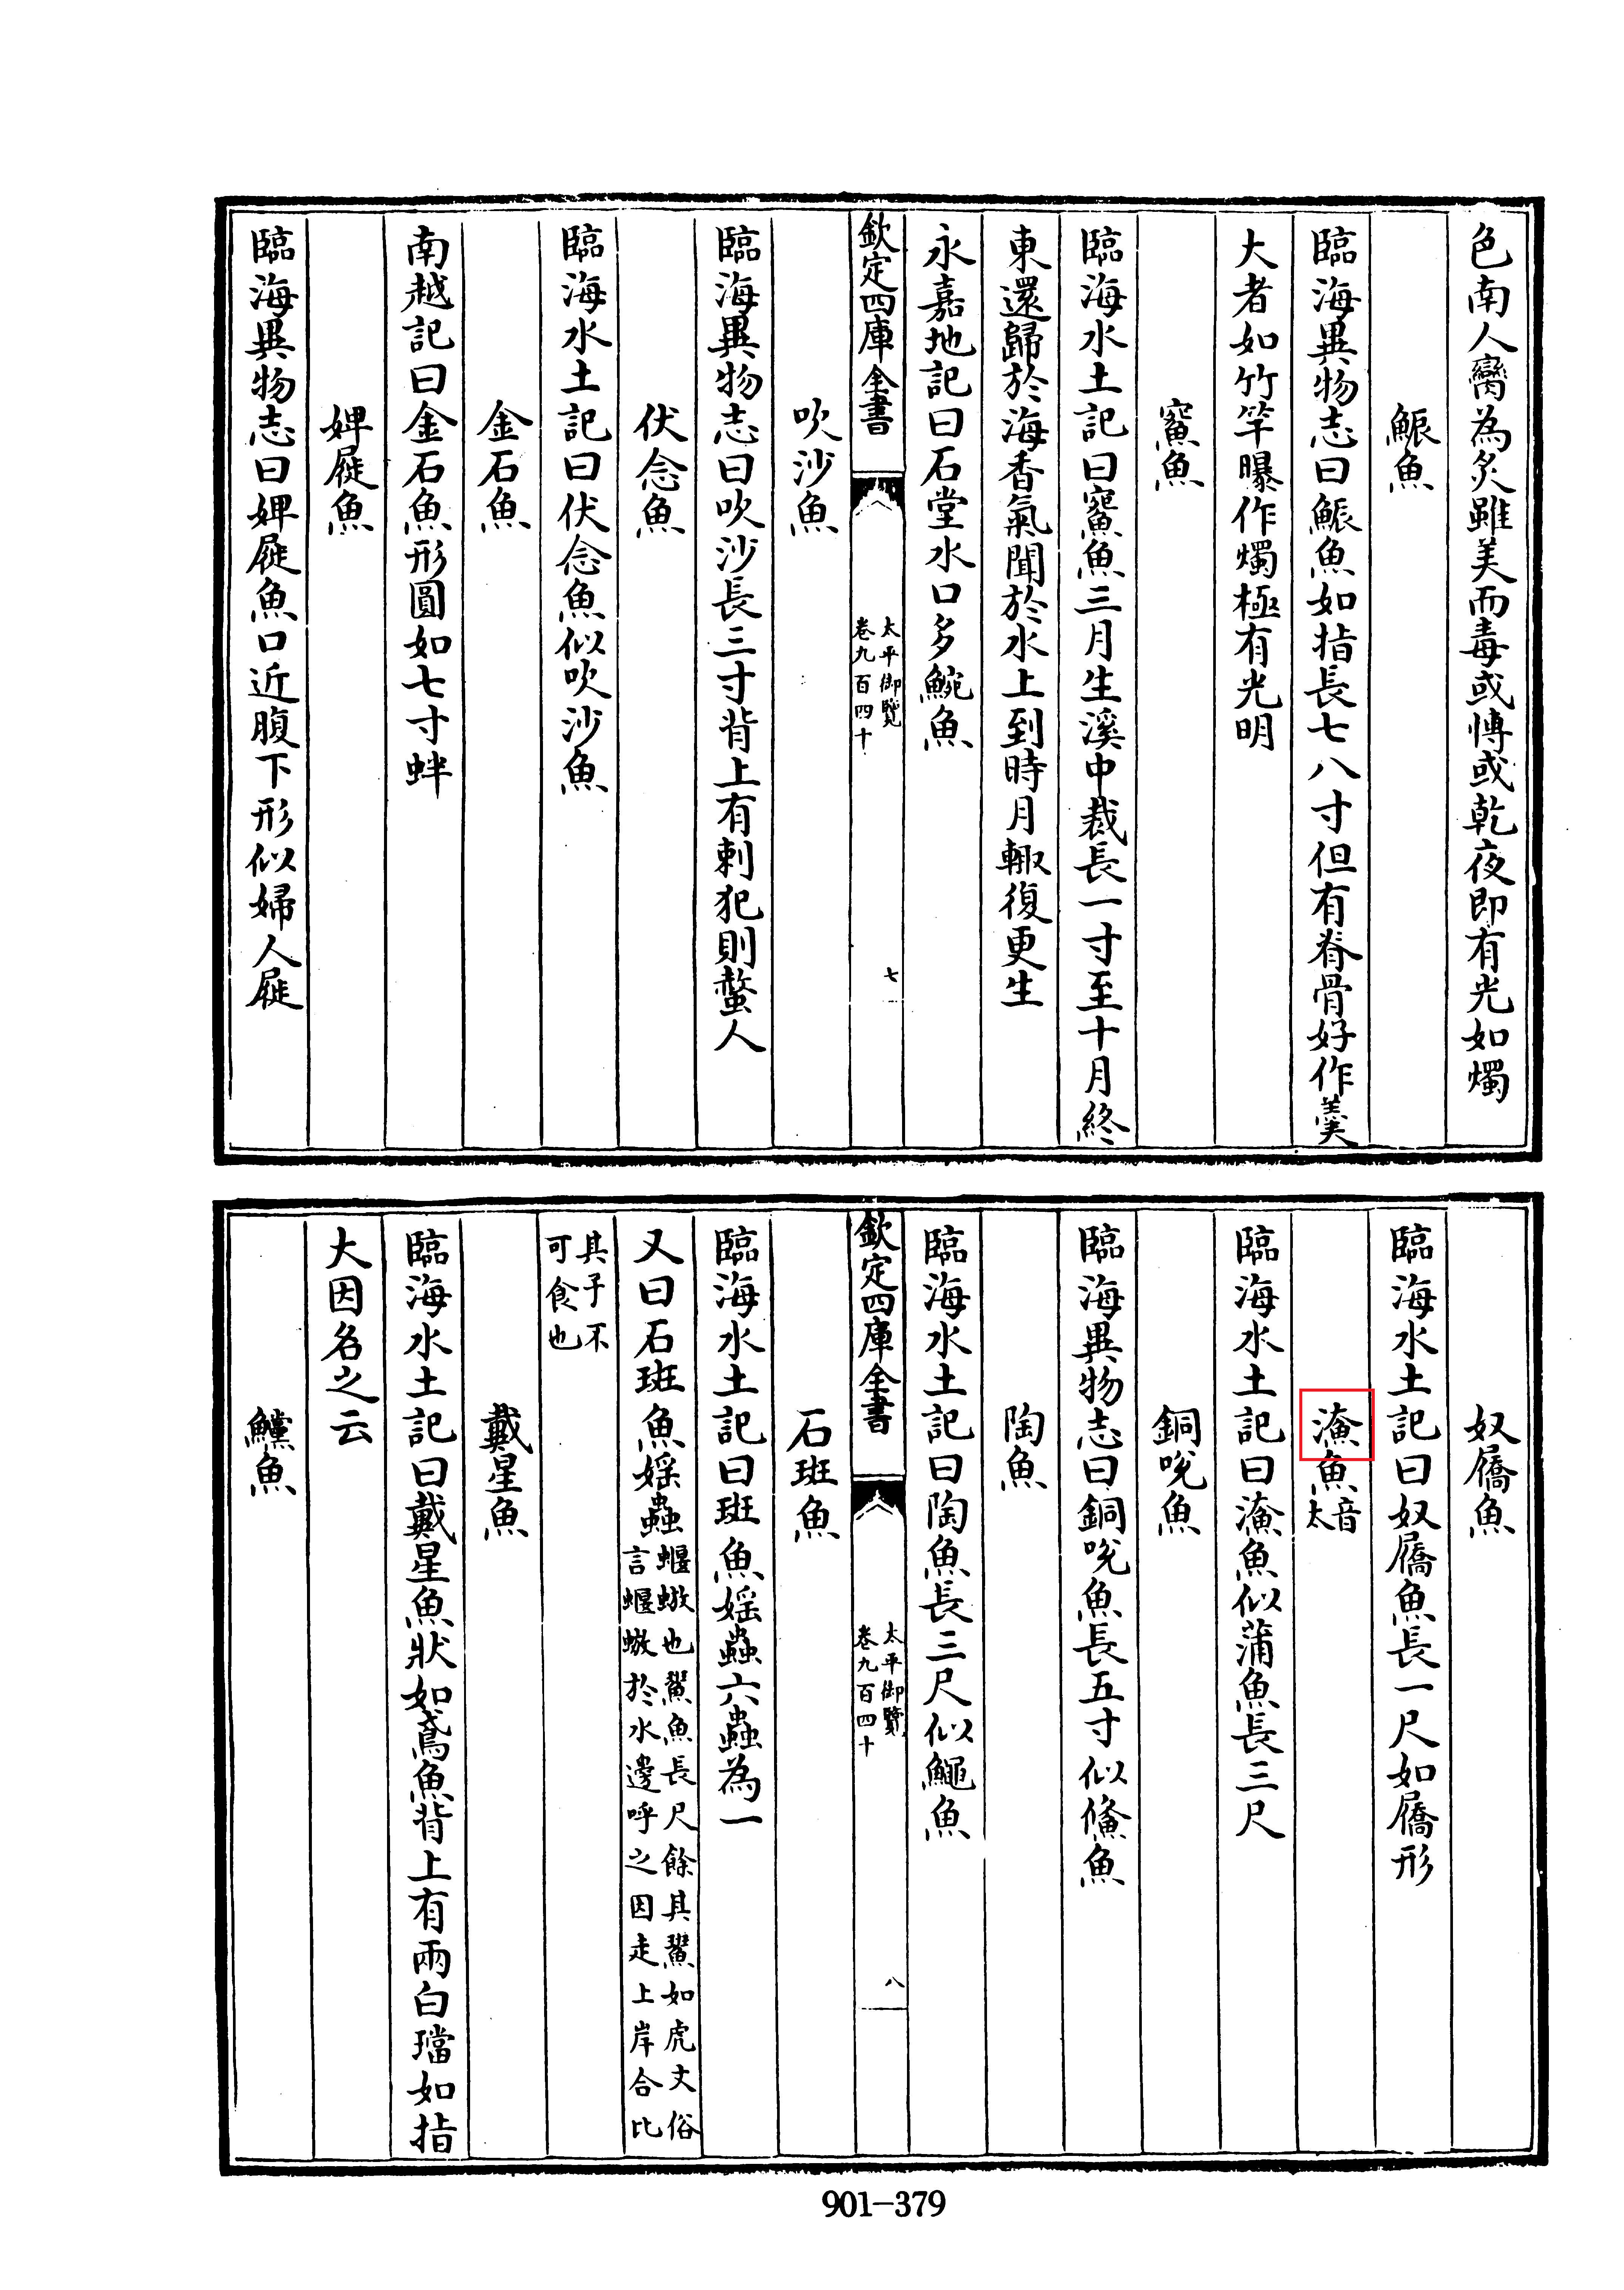 色南人臠為炙雖美而毒或愽或乾夜即有光如燭
魚
臨海異物志曰魚如指長七八寸但有脊骨好作羹
大者如竹竿曝作燭極有光明
魚
臨海水土記曰魚三月生溪中裁長一寸至十月終
東還歸於海香氣聞於水上到時月輙復更生
永嘉地記曰石堂水口多䱧魚
欽定四庫全書
太平御覽
卷九百四十
七
吹沙魚
臨海異物志曰吹沙長三寸背上有刺犯則螫人
伏念魚
臨海水土記曰伏念魚似吹沙魚
金石魚
南越記曰金石魚形圓如七寸蚌
婢屣魚
臨海異物志曰婢屣魚口近腹下形似婦人屣
奴屩魚
臨海水土記曰奴屩魚長一尺如屩形
魚音太
臨海水土記曰魚似蒲魚長三尺
銅哾魚
臨海異物志曰銅哾魚長五寸似鯈魚
陶魚
臨海水土記曰陶魚長三尺似鱦魚
欽定四庫全書
太平御覽
卷九百四十
八
石斑魚
臨海水土記曰斑魚媱蟲六蟲為一
又曰石斑魚媱蟲蝘也魚長尺餘其如虎文俗
言蝘於水邊呼之因走上岸合比
其子不
可食也
戴星魚
臨海水土記曰戴星魚狀如鳶魚背上有兩白璫如指
大因名之云
魚
901-379